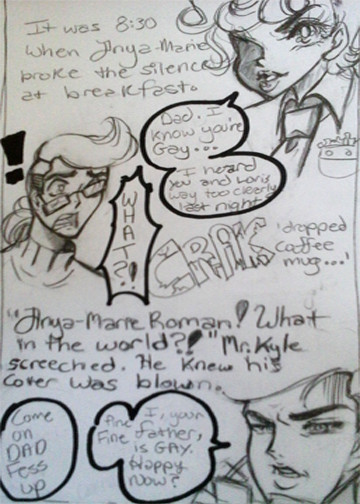 It was 8:30
when Anya-Marie
broke the silence
at breakfast.
Dad. I
know you're
Gay...
I heard
you and
way too clearly
last night
!
WHAT?!
CRASH
'dropped
coffee
mug...'
"Anya-Marie Roman! What
in the world?!" Mr. Kyle
screeched. He knew his
cover was blown.
Come
on
DAD
Fess
up
Fine I, your
Fine father,
is GAY.
Happy
Now?